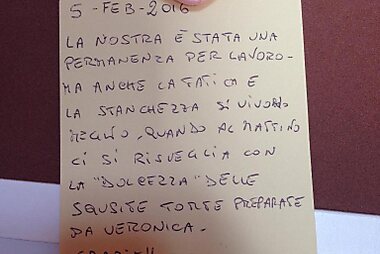 5-FEB-2016
LA NOSTRA È STATA UNA
PERMANENZA PER LAVORO-
MA ANCHE LA FATICA E
LA STANCHEZZA SI VIVONO
MEGLIO, QUANDO AL MATTINO
CI SI RISVEGLIA CON
LA "DOLCEZZA" DELLE
SQUSITE TORTE PREPARATE
DA VERONICA.
GRAZIE!!